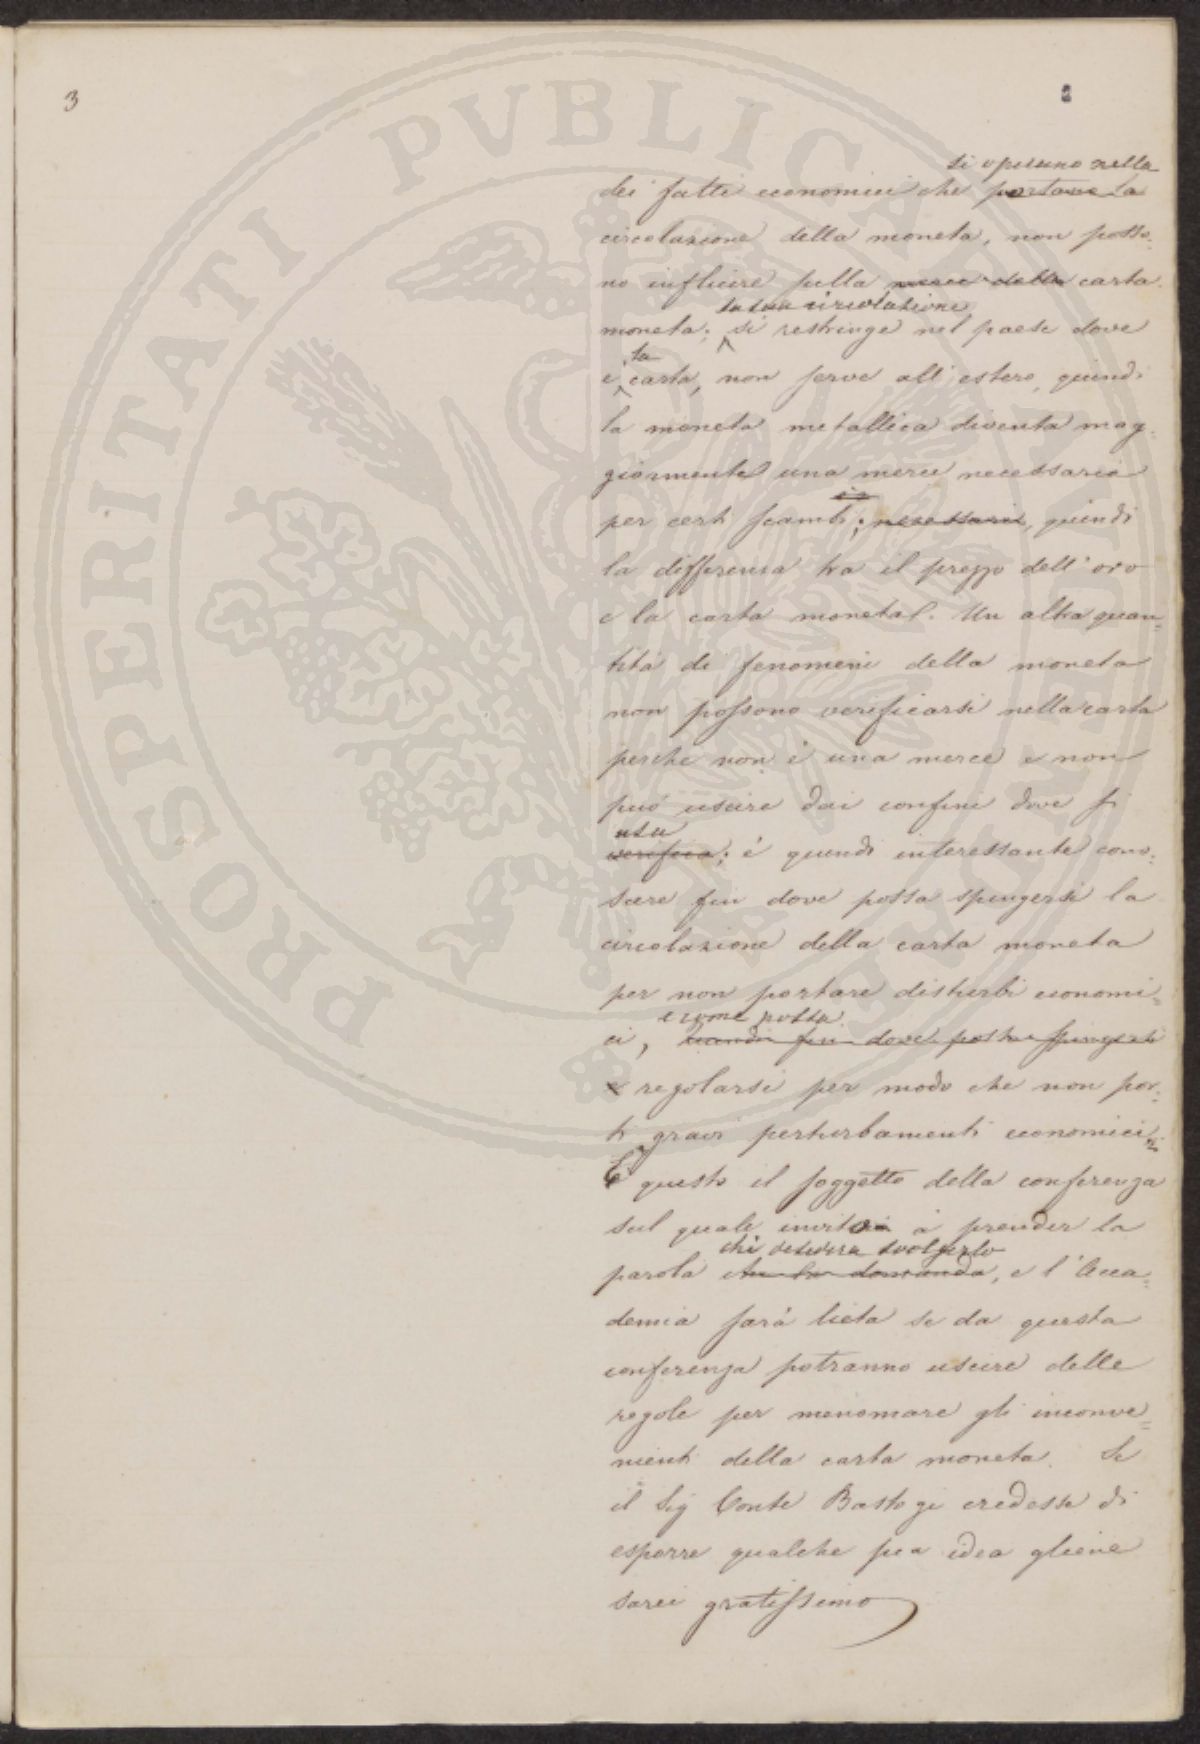 3
PROSPERITATI PVBLICAE
si operano nella
dei fatti economici che portano la
circolazione della moneta, non posso-
no influire sulla merce della carta
la sua circolazione
moneta; si restringe nel paese dove
la
è carta, non serve all'estero, quindi
la moneta metallica diventa mag-
giormente una merce necessaria
per certi scambi; necessaria, quindi
la differenza tra il prezzo dell'oro
e la carta moneta. Un altra quan=
tità di fenomeni della moneta
non possono verificarsi nella carta
perche non è una merce e non
può uscire dai confini dove si
usa
verifica; è quindi interessante cono-
scere fin dove possa spingersi la
circolazione della carta moneta
per non portare disturbi economi=
e come possa
ci, quindi fin dove possa spingersi
e regolarsi per modo che non por-
ti gravi perturbamenti economici
È questo il soggetto della conferenza
sul quale invito a prender la
chi desidera svolgerlo
parola chi la domanda, e l'Acca=
demia sarà lieta se da questa
conferenza potranno uscire delle
regole per menomare gli inconve=
nienti della carta moneta. Se
il Sig Conte Bastogi credesse di
esporre qualche sua idea gliene
sarei gratissimo